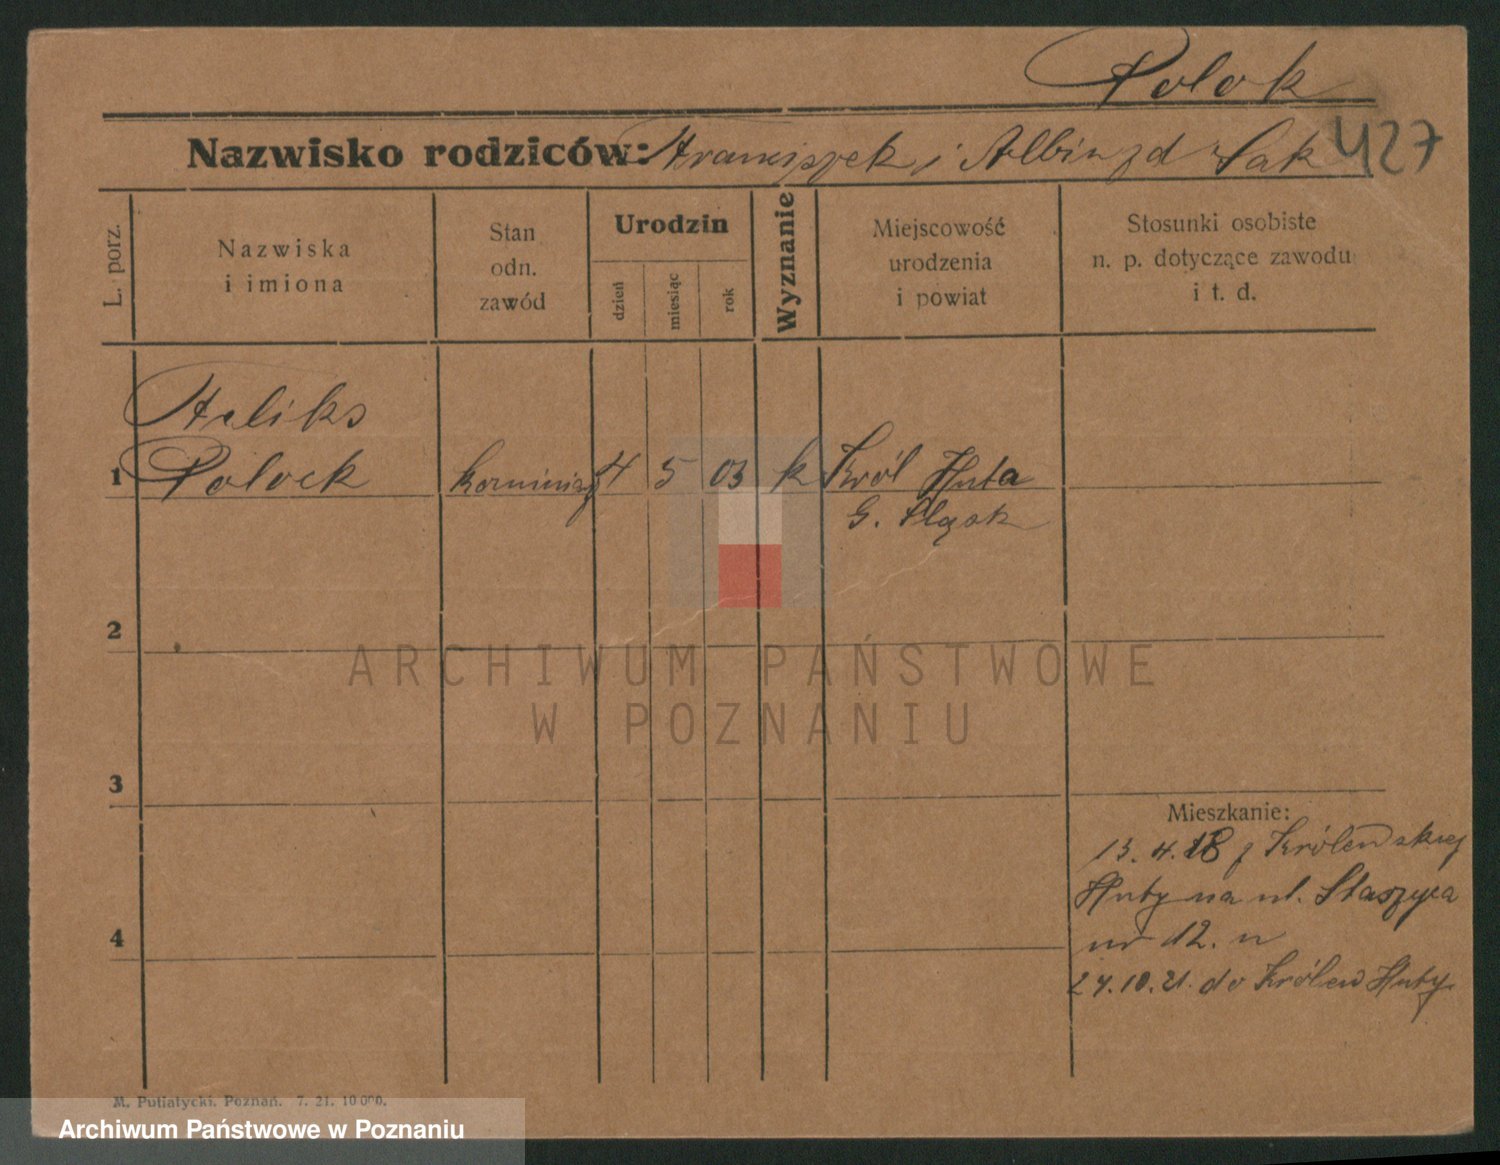 Polok
Nazwisko rodziców: Franciszek i Albin zd Sak 427
L. porz.
Nazwiska
i imiona
Stan
odn.
zawód
Urodzin
dzień
miesiąc
rok
Wyznanie
Miejscowość
urodzenia
i powiat
Stosunki osobiste
n. p. dotyczące zawodu
i t. d.
Feliks
1 Polock kominiarz 4 5 03 k Król Huta
G. Śląsk
2
ARCHIWUM PAŃSTWOWE
W POZNANIU
3
Mieszkanie:
13.4.18 z Królewskiej
Huty na ul. Staszyca
4
nr 12.
27.10.21. do Królew Huty
M. Putiatycki. Poznań. 7. 21. 10 000.
Archiwum Państwowe w Poznaniu